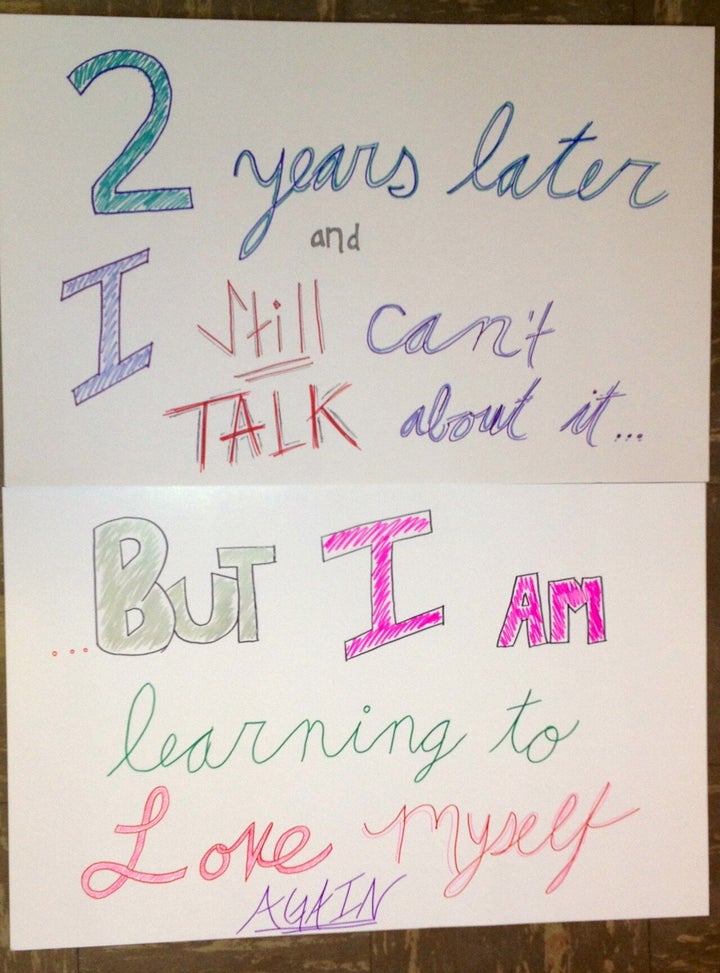 2 years later
and
I still can't
TALK about it...
...BUT I AM
learning to
Love Myself
AGAIN